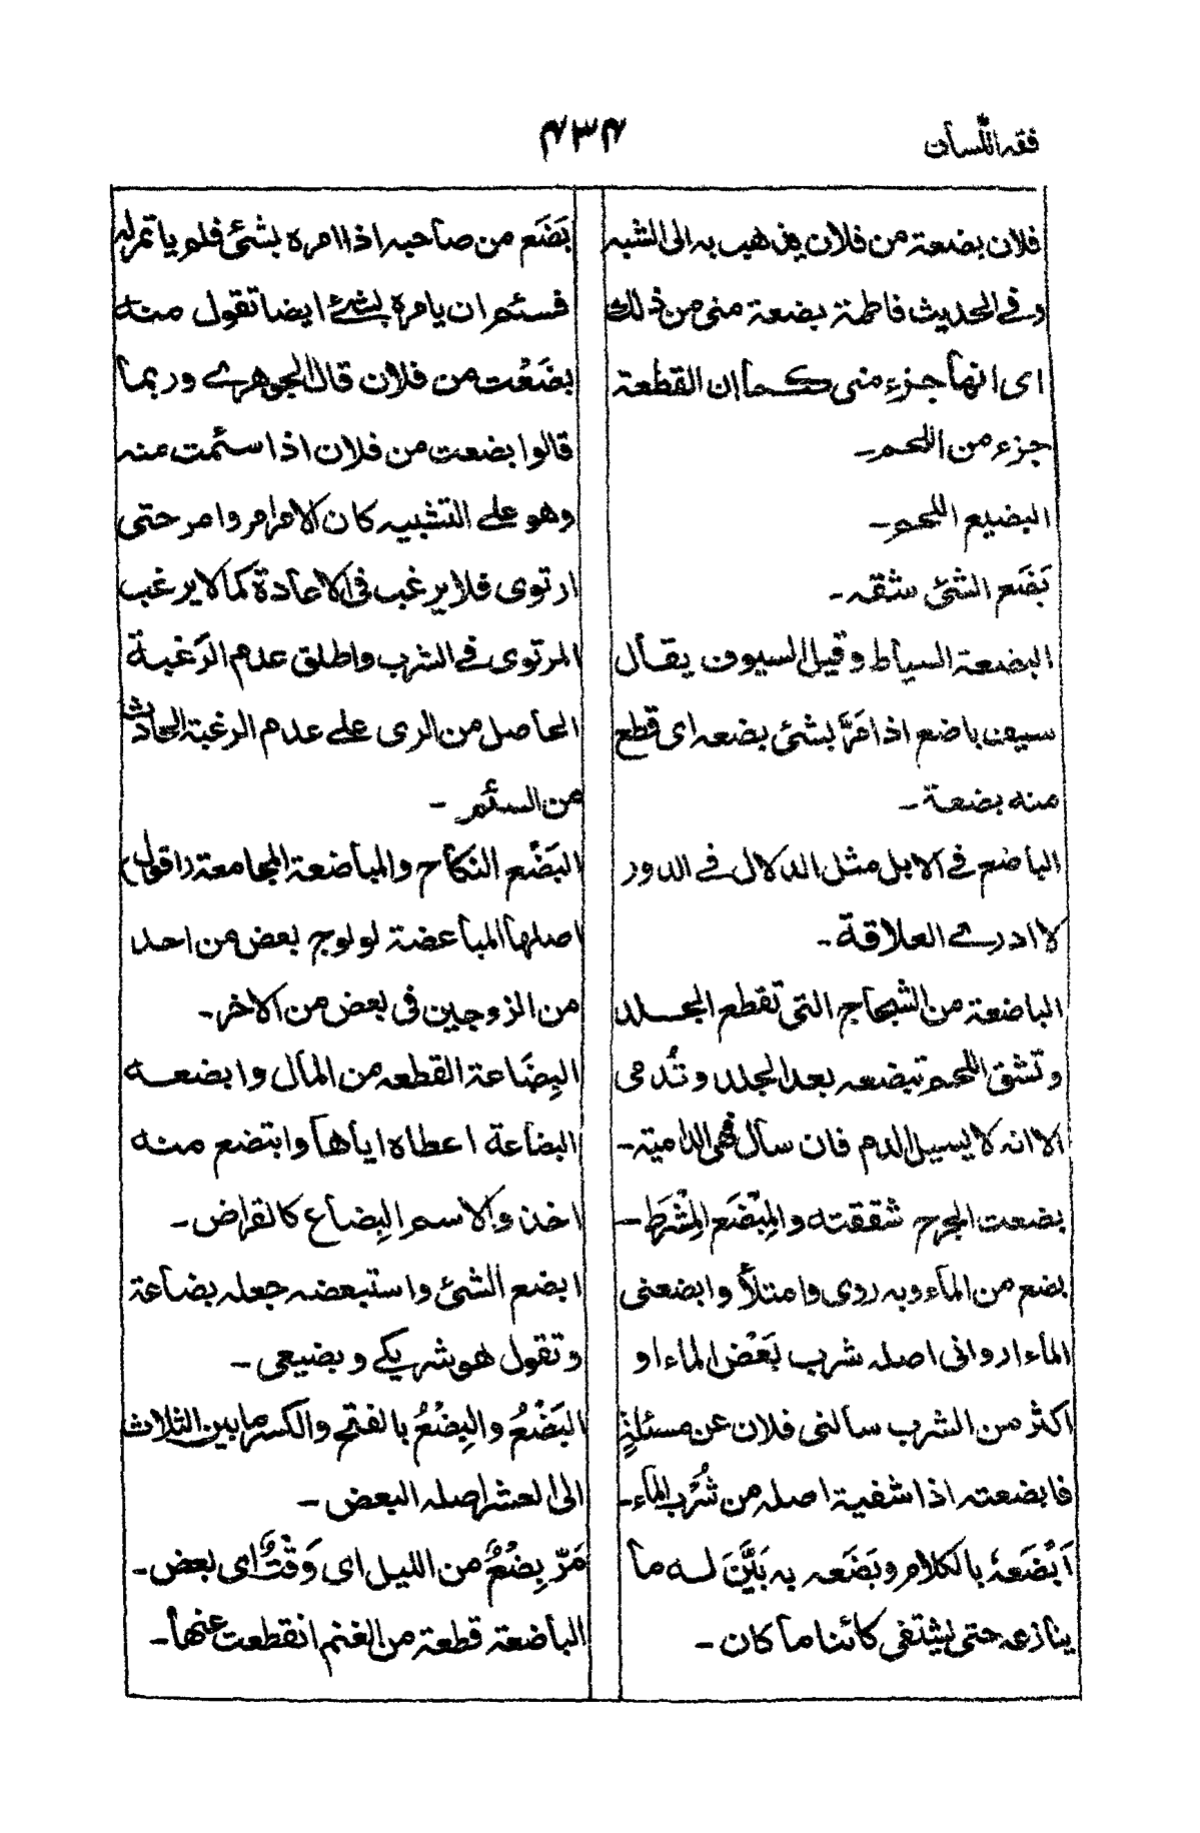 فقه اللّسان
۴۳۴
فلان بضعة من فلان يذهب به الى الشبه
وفے الحديث فاطمة بضعة منى من ذلك
اى انها جزءٍ منى كما ان القطعة
جزء من اللحم۔
البضيع اللحم۔
بَضَع الشئ شقه۔
البضعة السياط وقيل السيوف يقال
سيف باضع اذا مَرَّ بشئ بضعه اى قطع
منه بضعة۔
الباضع فے الابل مثل الدلال فے الدور
لا ادرے العلاقة۔
الباضعة من الشجاج التى تقطع الجلد
وتشق اللحم تبضعه بعد الجلد وتُدمى
الا انه لا يسيل الدم فان سال فهى الدامية۔
بضعت الجرح شققته والمِبْضَع المِشْرَط۔
بضع من الماء وبه روى وامتلأ وابضعنى
الماء اروانى اصله شرب بَعْض الماء او
اكثر من الشرب سالنى فلان عن مسئلةٍ
فابضعته اذا شفية اصله من شُرْب الماء۔
اَبْضَعهٗ بالكلام وبَضَعه به بَيَّنَ له ما
ينازعه حتى يشتفى كائنا ما كان۔
بَضَع من صاحبه اذا امره بشئ فلم ياتمر له
فسئم ان يامره بشئے ايضا تقول منه
بضَعْت من فلان قال الجوهرے وربما
قالوا بضعت من فلان اذا سئمت منه
وهو علے التشبيه كان الامر امر وامر حتى
ارتوى فلا يرغب فى الاعادة كما لا يرغب
المرتوى فے الشرب واطلق عدم الرَغبة
الحاصل من الرى علے عدم الرغبة الحادث
من السئم۔
البَضْع النكاح والمباضعة المجامعة (اقول)
اصلها المباعضة لولوج بعض من احد
من الزوجين فى بعض من الاخر۔
البِضَاعة القطعه من المال وابضعه
البضاعة اعطاه اياها وابتضع منه
اخذ والاسم البِضاع كالقراض۔
ابضع الشئ واستبعضه جعله بضاعة
وتقول هو شريكے وبضيعى۔
البَضْعُ والبِضْعُ بالفتح والكسر ما بين الثلاث
الى العشر اصله البعض۔
مَرّ بِضْعٌ من الليل اى وَقْتٌ اى بعض۔
الباضعة قطعة من الغنم انقطعت عنها۔